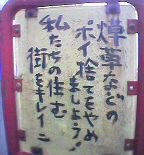 煙草などの
ポイ捨てをやめ
ましょう!
私たちの住む
街をキレイニ